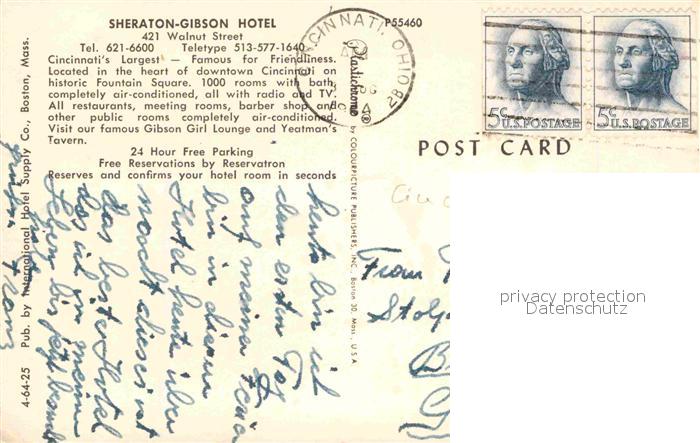 SHERATON-GIBSON HOTEL
421 Walnut Street
Tel. 621-6600 Teletype 513-577-1640
Cincinnati's Largest — Famous for Friendliness.
Located in the heart of downtown Cincinnati on
historic Fountain Square. 1000 rooms with bath,
completely air-conditioned, all with radio and TV.
All restaurants, meeting rooms, barber shop and
other public rooms completely air-conditioned.
Visit our famous Gibson Girl Lounge and Yeatman's
Tavern.
24 Hour Free Parking
Free Reservations by Reservatron
Reserves and confirms your hotel room in seconds
4-64-25 Pub. by International Hotel Supply Co., Boston, Mass.
P55460
CINCINNATI, OHIO
Plastichrome ® by COLOURPICTURE PUBLISHERS, INC., Boston 30, Mass., U.S.A.
5c U.S. POSTAGE
5c U.S. POSTAGE
POST CARD
heute bin ich
den ersten Tag
auf meiner
bin in diesem
Hotel heute über
nacht dieses ist
das beste Hotel
das ich in meinem
Leben bis jetzt
Franz
Frau
privacy protection
Datenschutz